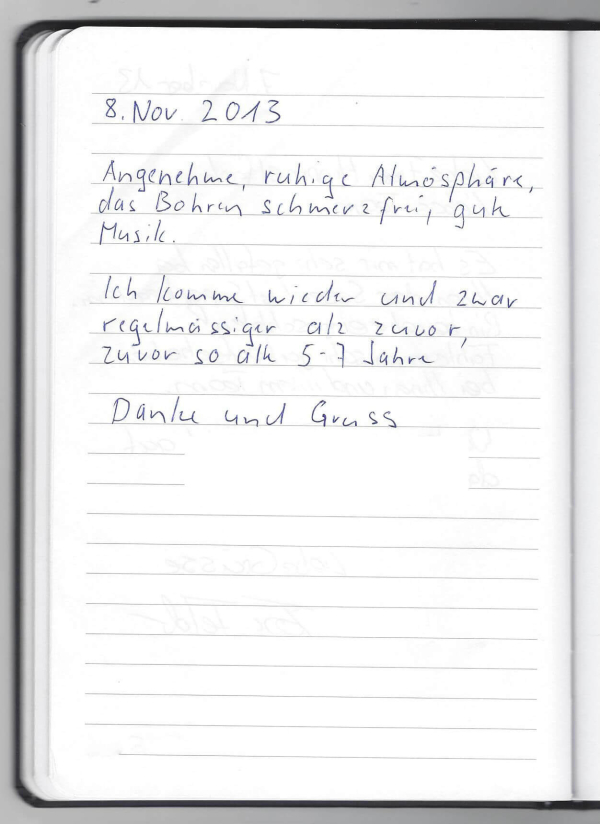 8. Nov 2013
Angenehme, ruhige Atmosphäre,
das Bohren schmerzfrei, gute
Musik.
Ich komme wieder und zwar
regelmässiger als zuvor,
zuvor so alle 5-7 Jahre
Danke und Gruss